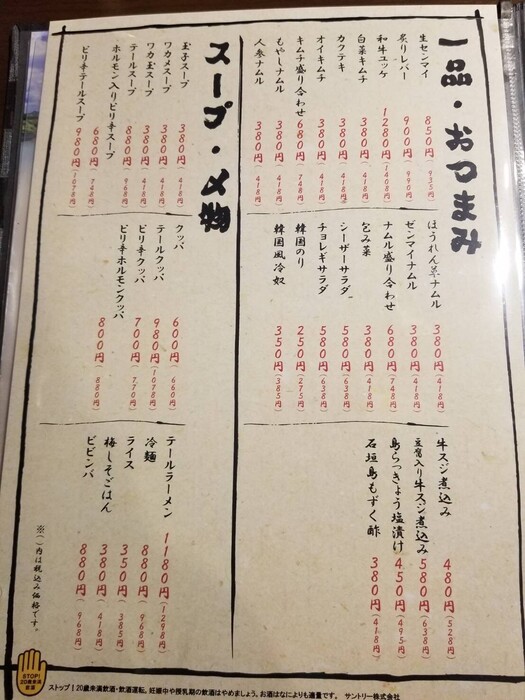 一品・おつまみ
生センマイ 850円(935円)
炙りレバー 900円(990円)
和牛ユッケ 1280円(1408円)
白菜キムチ 380円(418円)
カクテキ 380円(418円)
オイキムチ 380円(418円)
キムチ盛り合わせ 680円(748円)
もやしナムル 380円(418円)
人参ナムル 380円(418円)
ほうれん草ナムル 380円(418円)
ゼンマイナムル 380円(418円)
ナムル盛り合わせ 680円(748円)
包み菜 380円(418円)
シーザーサラダ 580円(638円)
チョレギサラダ 580円(638円)
韓国のり 250円(275円)
韓国風冷奴 350円(385円)
牛スジ煮込み 480円(528円)
豆腐入り牛スジ煮込み 580円(638円)
島らっきょう塩漬け 450円(495円)
石垣島もずく酢 380円(418円)
スープ・〆物
玉子スープ 380円(418円)
ワカメスープ 380円(418円)
ワカ玉スープ 380円(418円)
テールスープ 880円(968円)
ホルモン入りピリ辛スープ 680円(748円)
ピリ辛テールスープ 980円(1078円)
クッパ 600円(660円)
テールクッパ 980円(1078円)
ピリ辛クッパ 700円(770円)
ピリ辛ホルモンクッパ 800円(880円)
テールラーメン 1180円(1298円)
冷麺 880円(968円)
ライス 350円(385円)
梅しそごはん 380円(418円)
ビビンバ 880円(968円)
※()内は税込み価格です。
STOP!
20歳未満
飲酒
ストップ!20歳未満飲酒・飲酒運転。妊娠中や授乳期の飲酒はやめましょう。お酒はなによりも適量です。 サントリー株式会社